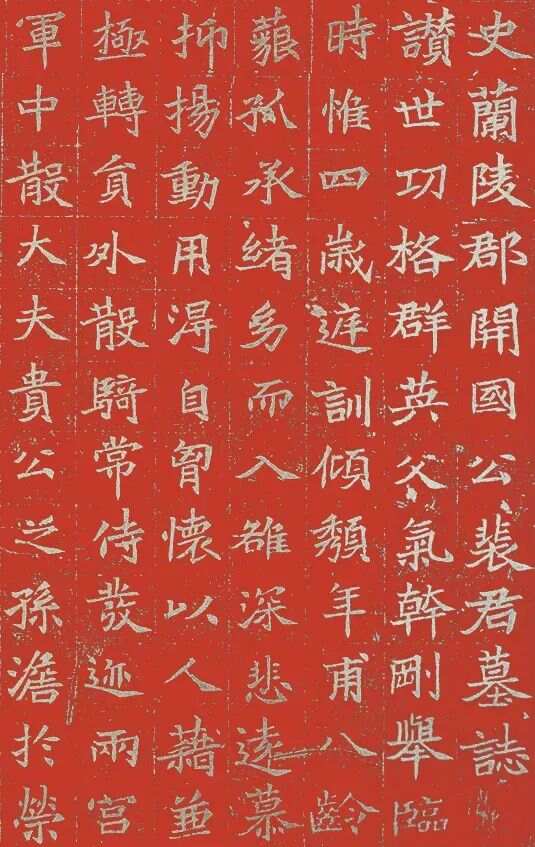 史蘭陵郡開國公裴君墓誌
讚世功格群英父氣幹剛舉臨
時惟四歲訓傾頹年甫八齡
藐孤承緒幼而入雒深悲遠慕
抑揚動用得自胷懷以人藉並
極轉員外散騎常侍發迹兩宮
軍中散大夫貴公之孫澹於榮